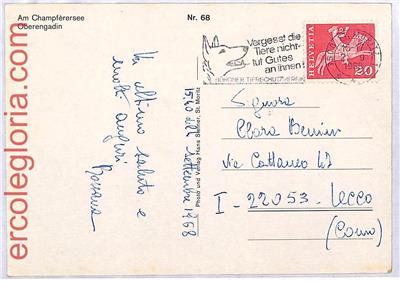 Am Champférersee
Oberengadin
Nr. 68
Vergesst die
Tiere nicht-
tut Gutes
an ihnen!
HELVETIA
20
Un ultimo saluto e
molti auguri
Rossana
settembre 1968
Photo und Verlag Hans Steiner, St. Moritz
Signora
Clara
via Cattaneo 47
I - 22053 - Lecco
(Como)
ercolegloria.com